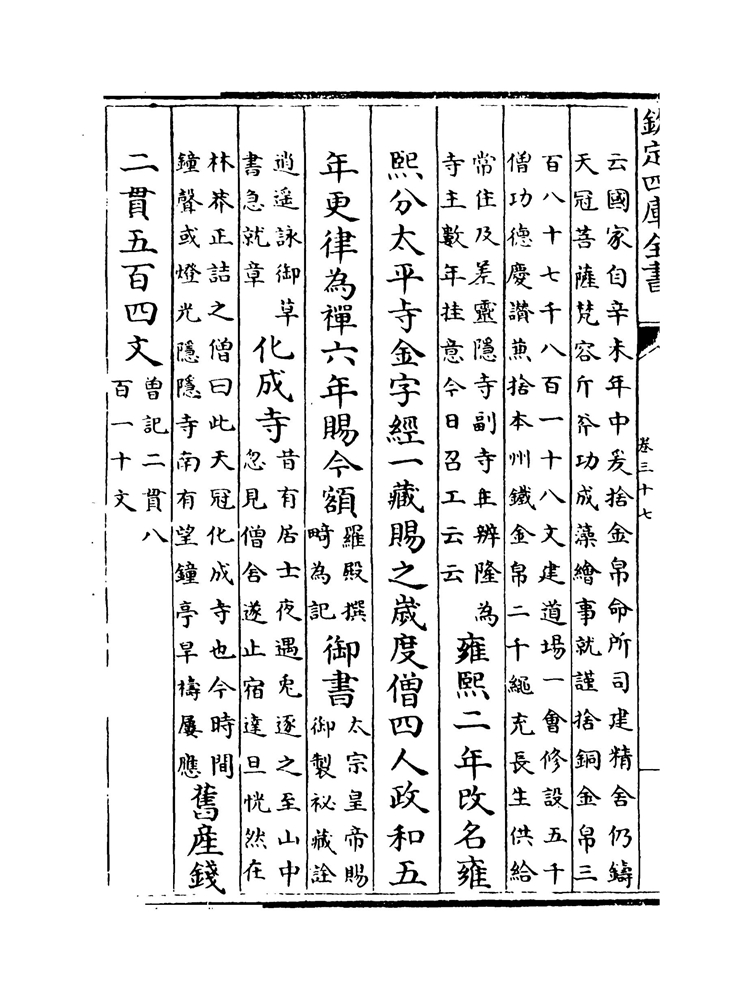 欽定四庫全書
卷三十七
云國家自辛未年中爰捨金帛命所司建精舍仍鑄
天冠菩薩梵容斤斧功成藻繪事就謹捨銅金帛三
百八十七千八百一十八文建道場一會修設五千
僧功德慶讚兼捨本州鐵金帛二千繩充長生供給
常住及差靈隱寺副寺主辨隆為
寺主數年挂意今日召工云云
雍熙二年改名雍
熙分太平寺金字經一藏賜之歲度僧四人政和五
年更律為禪六年賜今額
羅殿撰
畸為記
御書
太宗皇帝賜
御製祕藏詮
逍遥詠御草
書急就章
化成寺
昔有居士夜遇兎逐之至山中
忽見僧舍遂止宿達旦恍然在
林莽正詰之僧曰此天冠化成寺也今時間
鐘聲或燈光隱隱寺南有望鐘亭旱禱屢應
舊産錢
二貫五百四文
曽記二貫八
百一十文